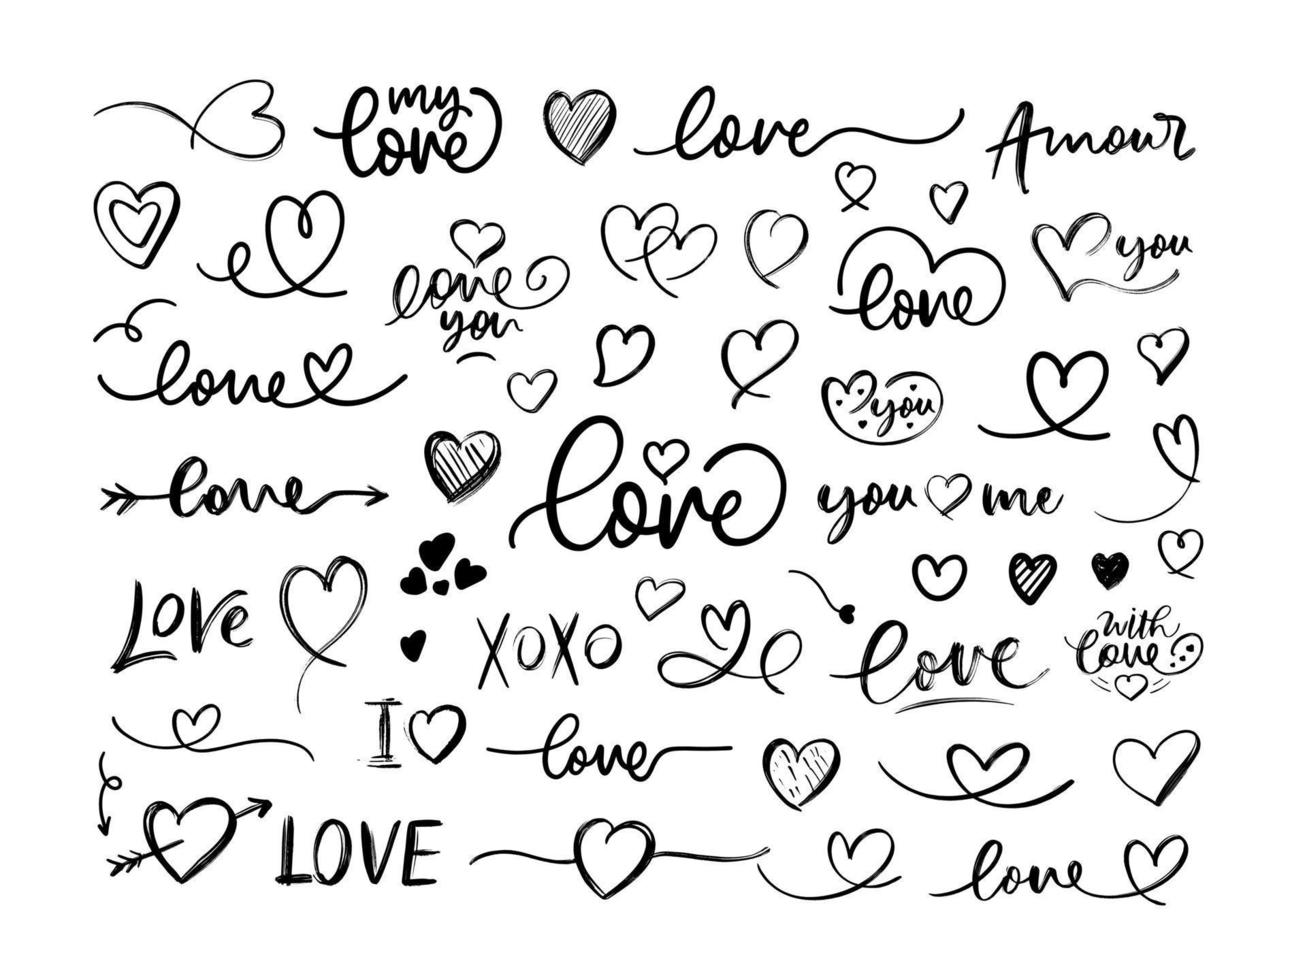 my
love
love
Amour
love
you
love
you
love
you
love
love
you me
Love
XOXO
love
with
love
I
love
LOVE
love